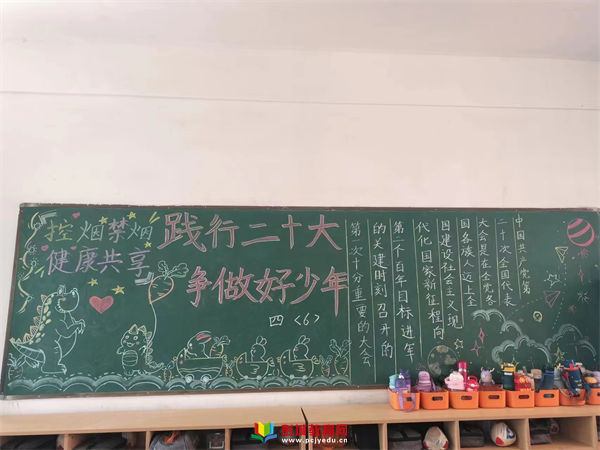 控烟禁烟
健康共享
践行二十大
争做好少年
四〈6〉
中国共产党第
二十次全国代表
大会是在全党
国各族人迈上全
国建设社会主义现
代化国家新征程向
第二个百年目标进军
的关建时刻召开的
第一次十分重要的大会
www.pcjyedu.cn